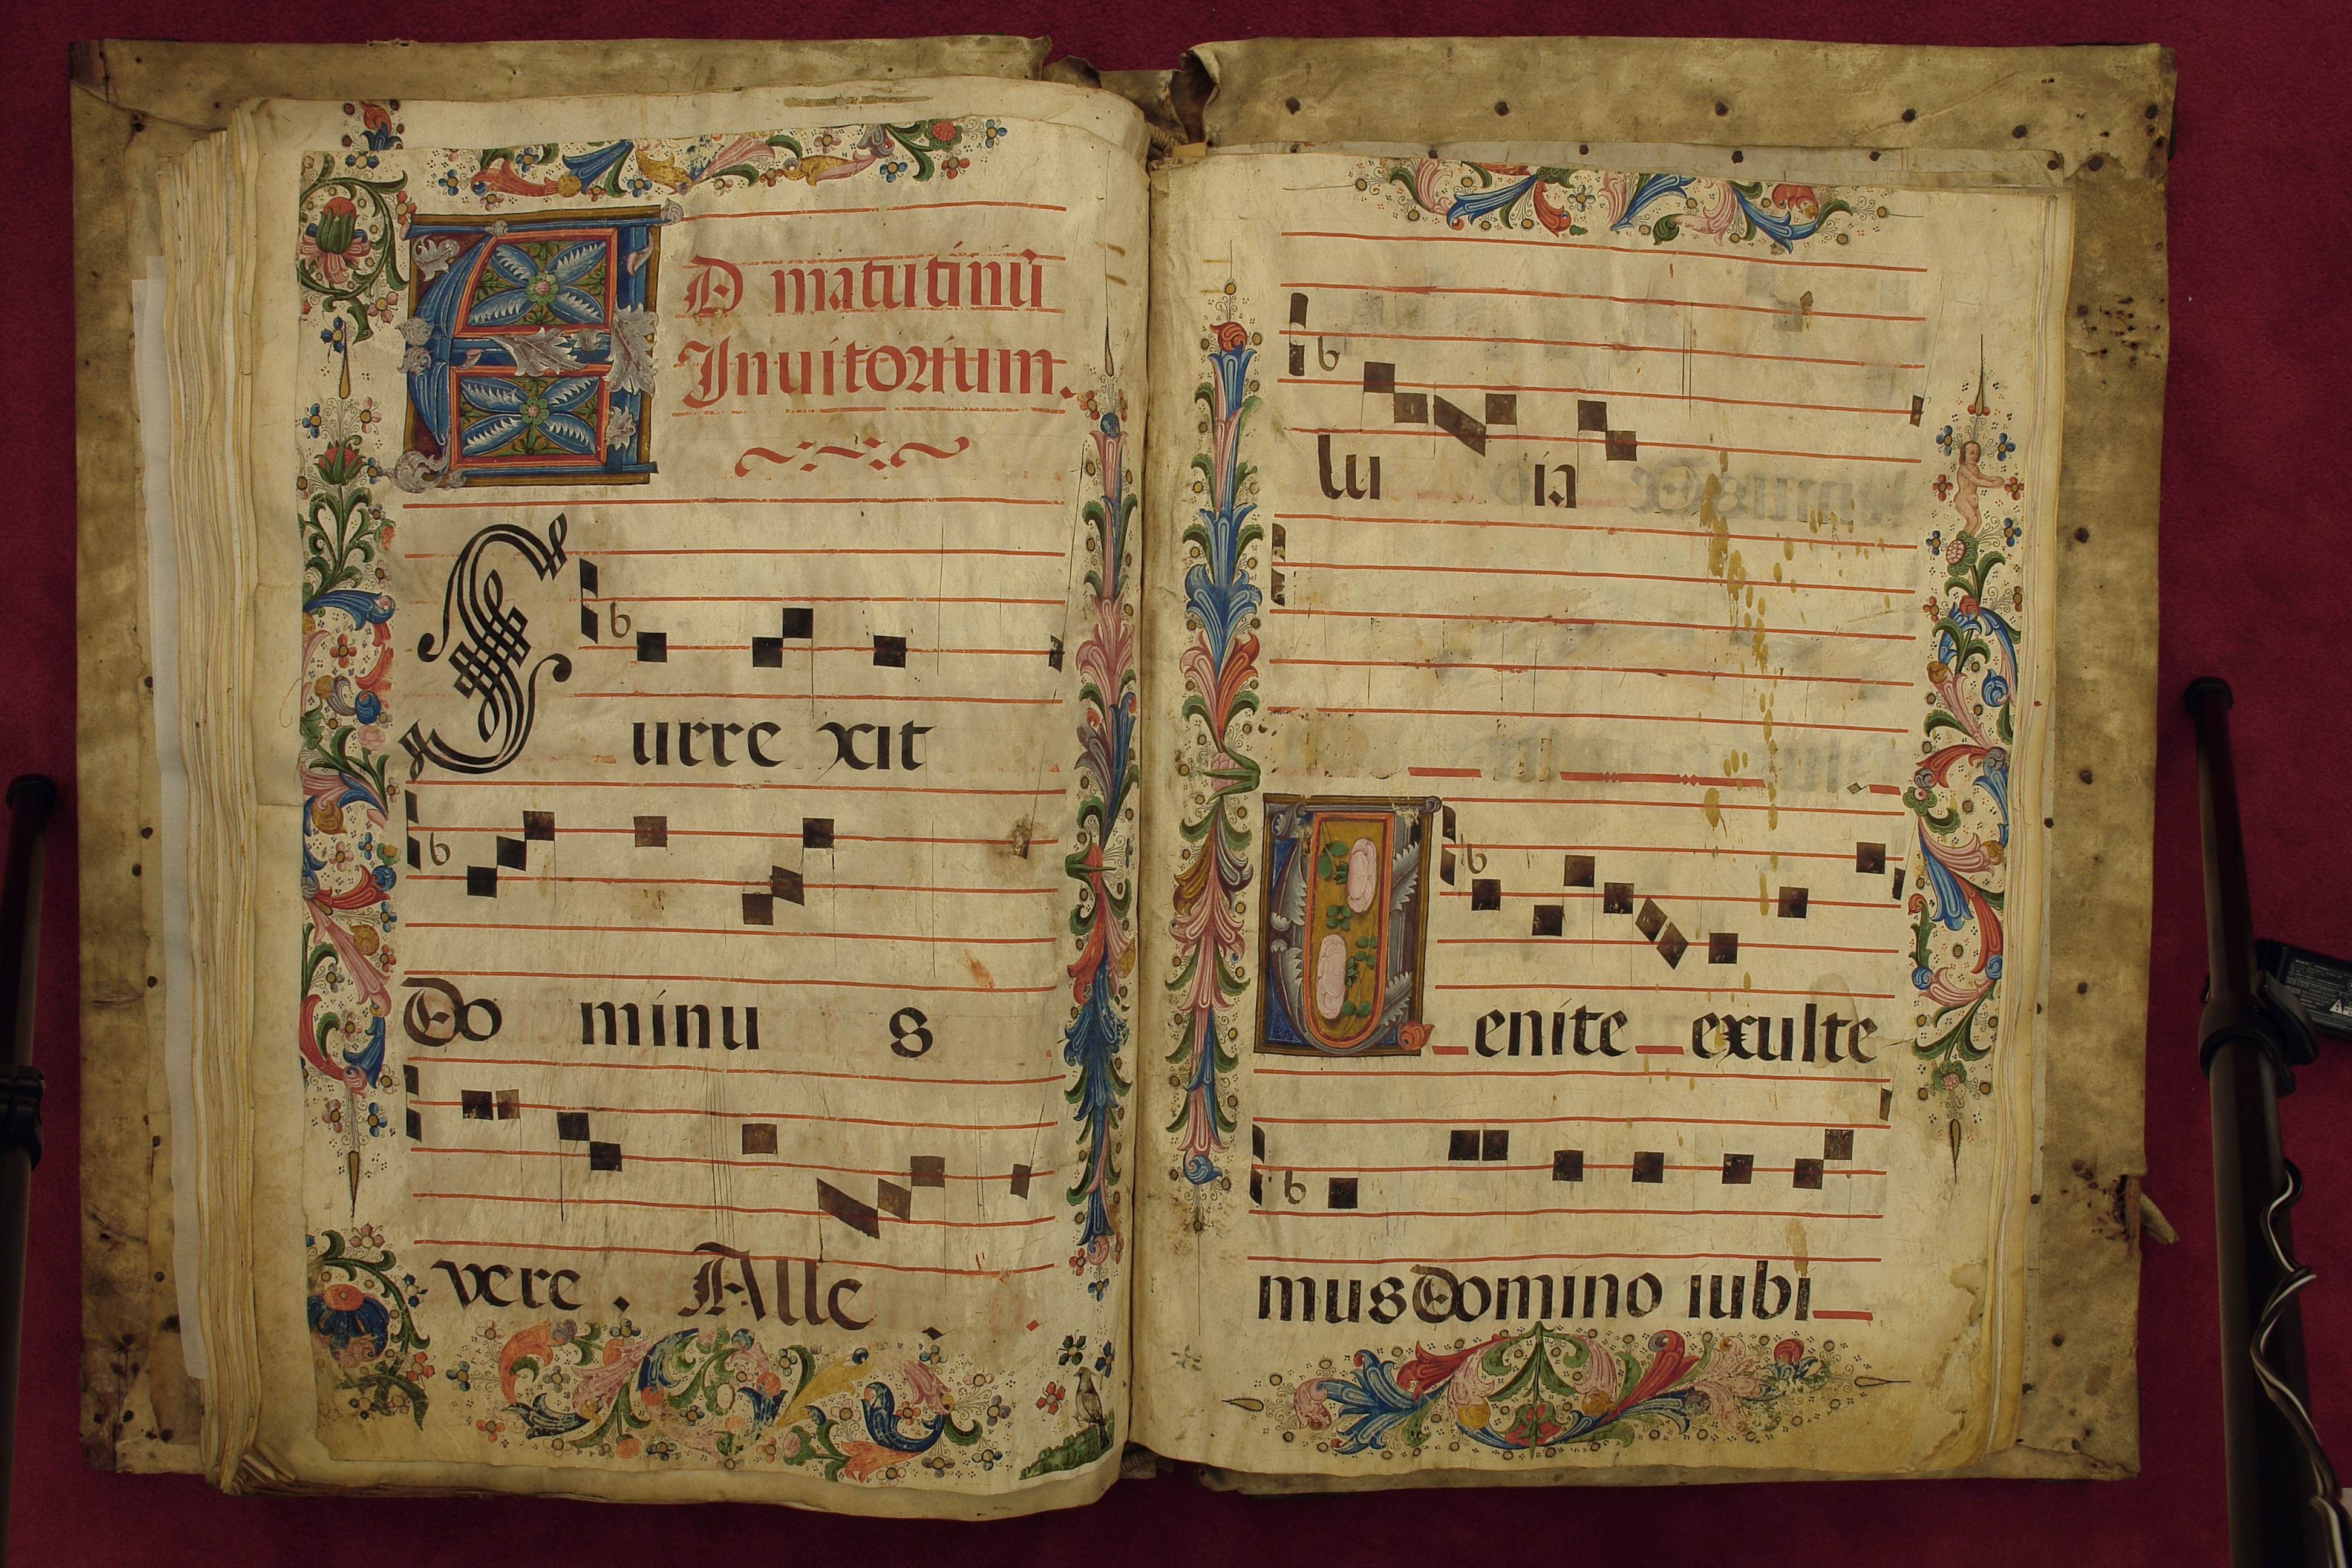 AD matutinū
Inuitorium.
Surre xit
Do minu s
vere . Alle
lu ia
Uenite exulte
mus Domino iubi